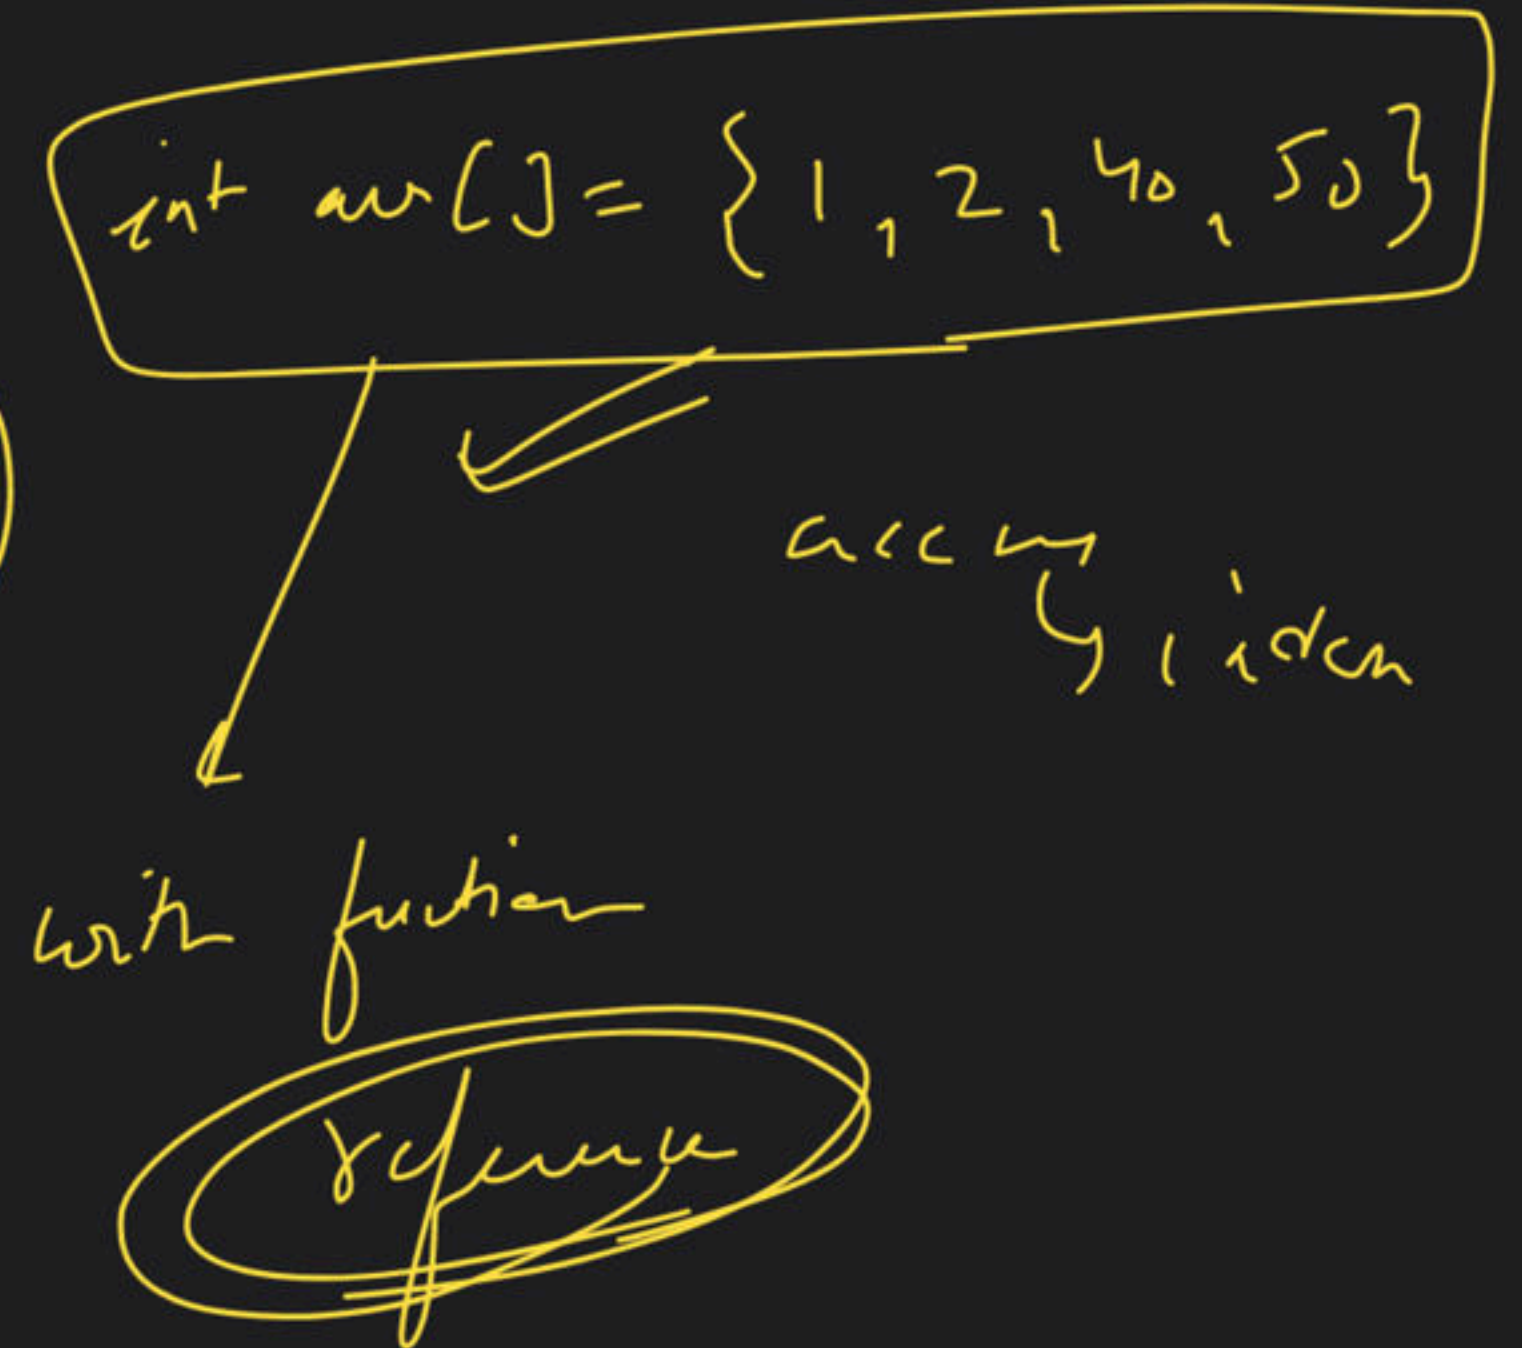 int arr[] = {1, 2, 40, 50}
access
↳ , index
with function
reference